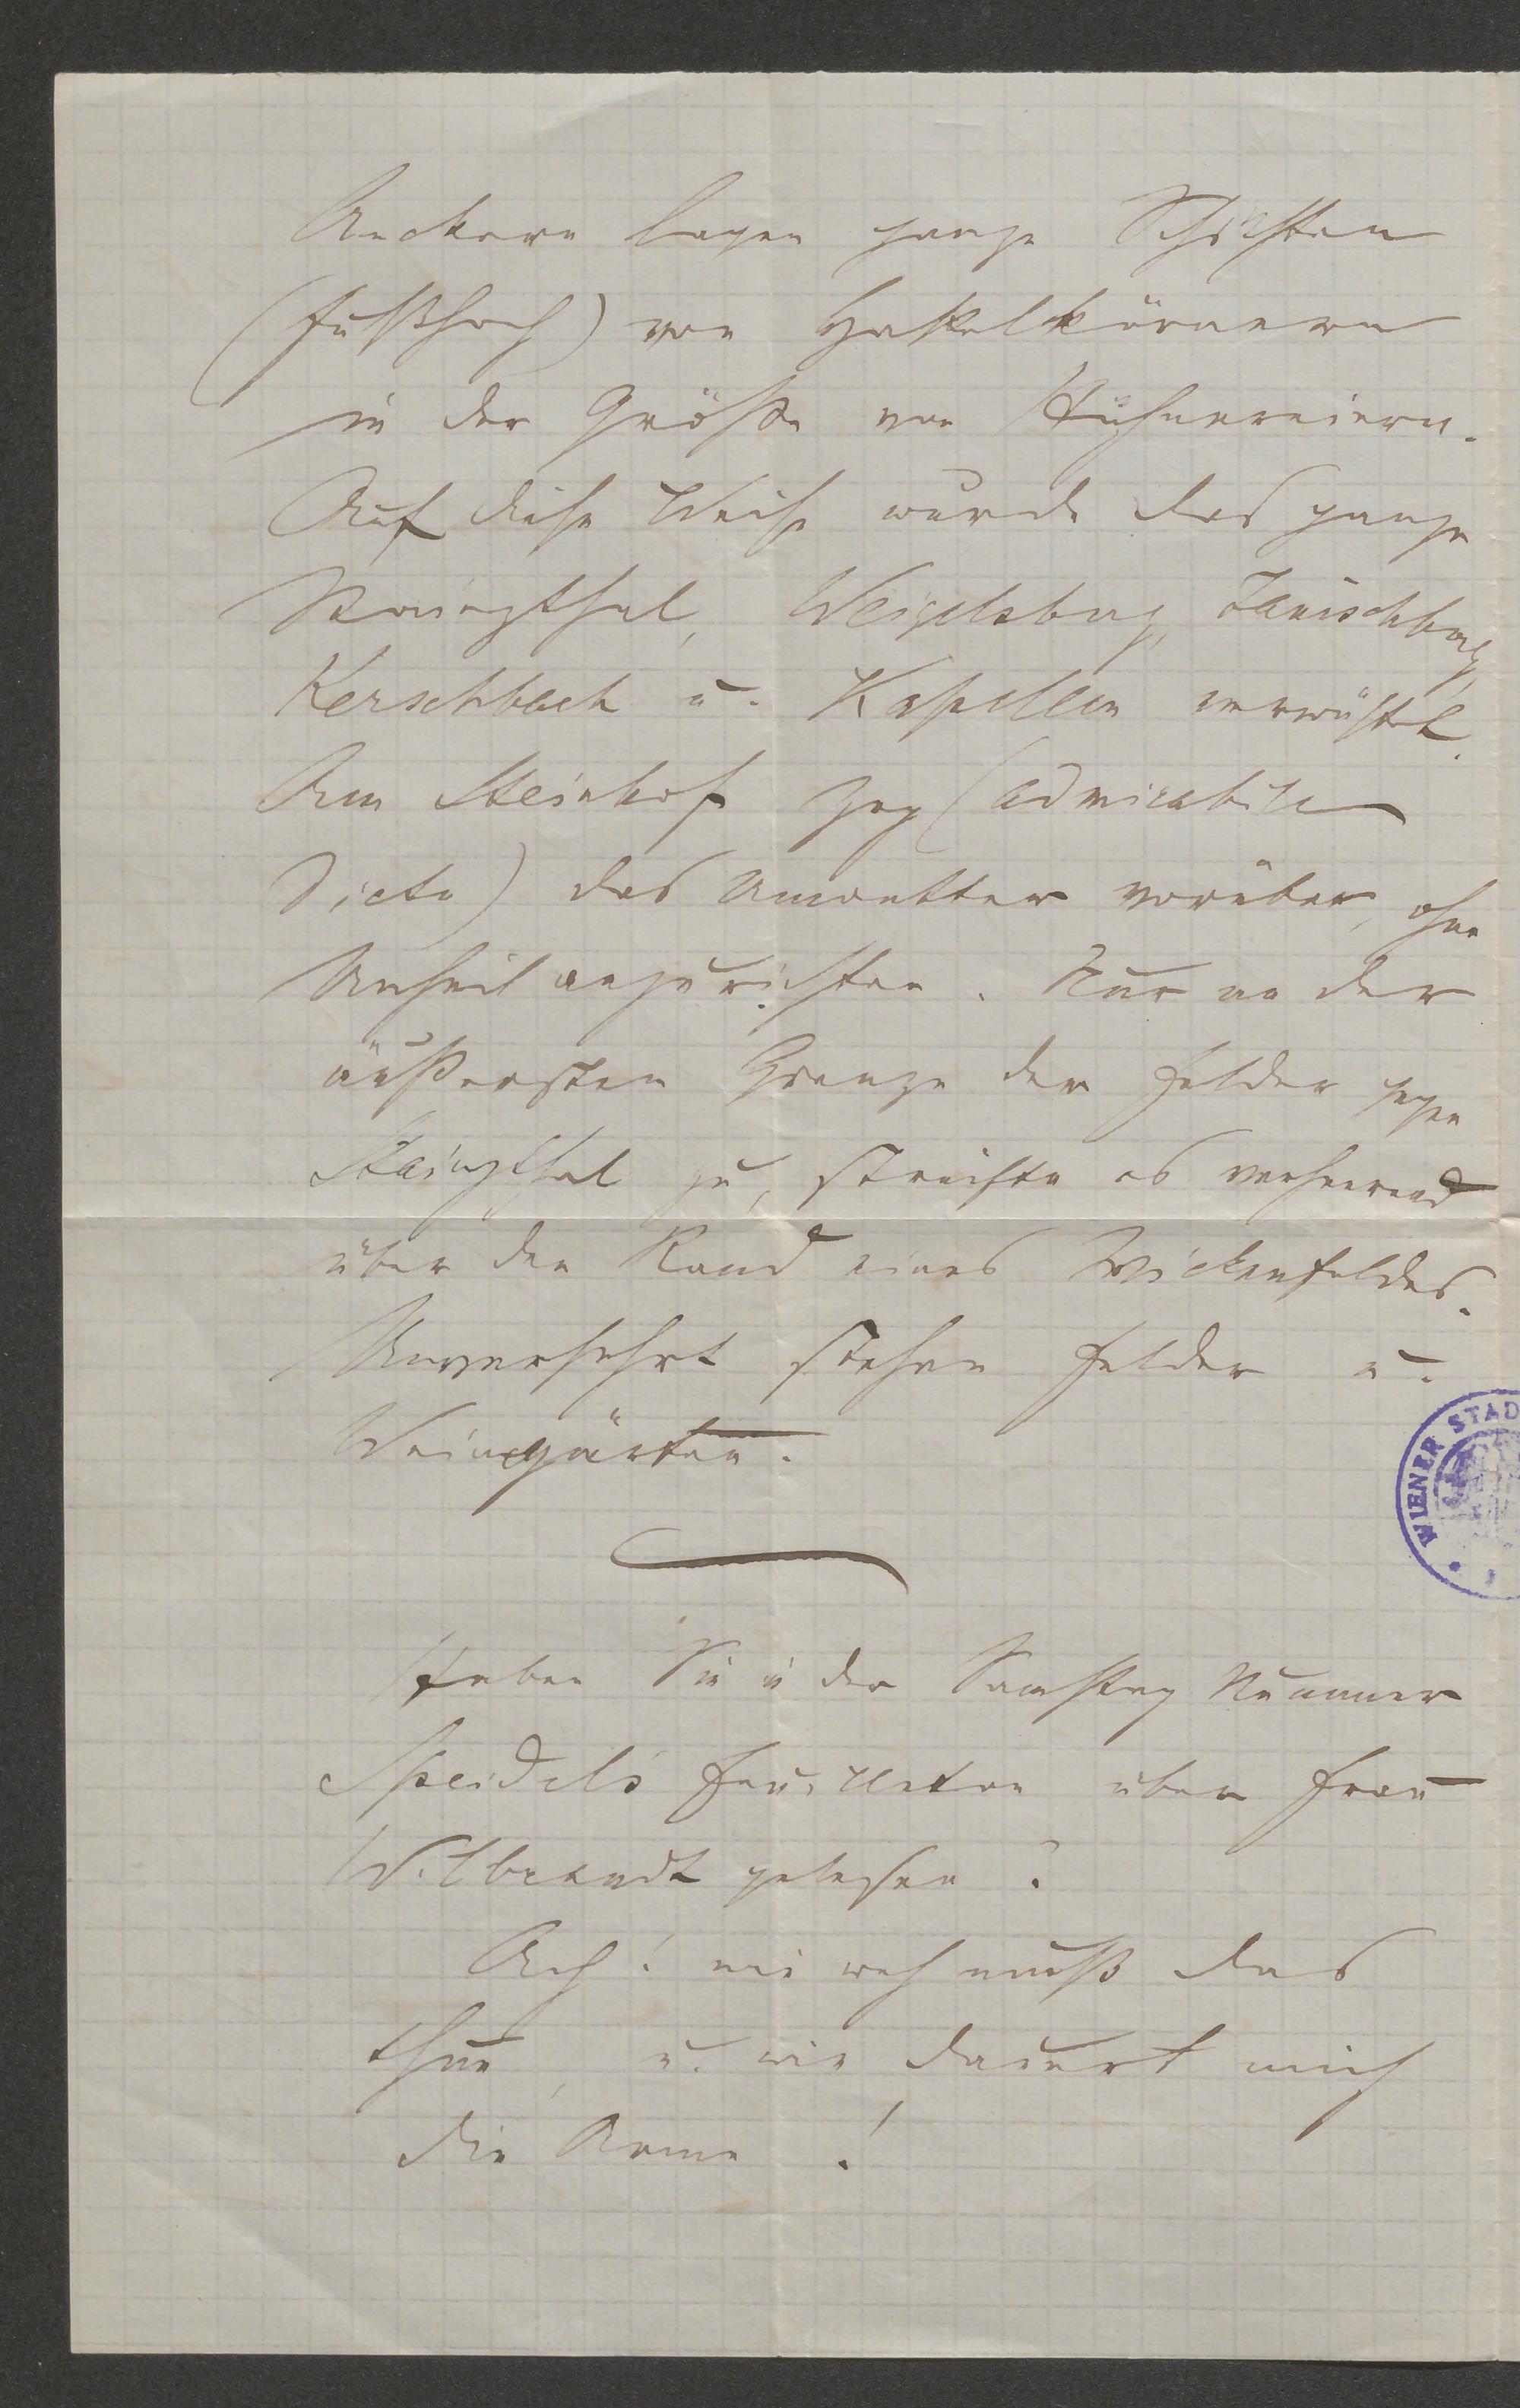 Aeckern lagen ganze Schichten
(fußhoch) von Hagelkörnern
in der Größe von Hühnereiern.
Auf diese Weise wurde das ganze
Stainzthal, Weigelsberg, Janischberg,
Kerschbach u. Kapellen verwüstet.
Am Steinhof zog (admirabile
dictu) das Unwetter vorüber, ohne
Unheil anzurichten. Nur an der
äußersten Grenze der Felder gegen
Stainzthal zu, streifte es verheerend
über den Rand eines Wickenfeldes.
Unversehrt stehen Felder u.
Weingärten.
Haben Sie in der Samstag Nummer
Speidels Feuilleton über Frau
Wilbrandt gelesen?
Ach! wie weh muß das
thun, u. wie dauert mich
die Arme!
WIENER STAD